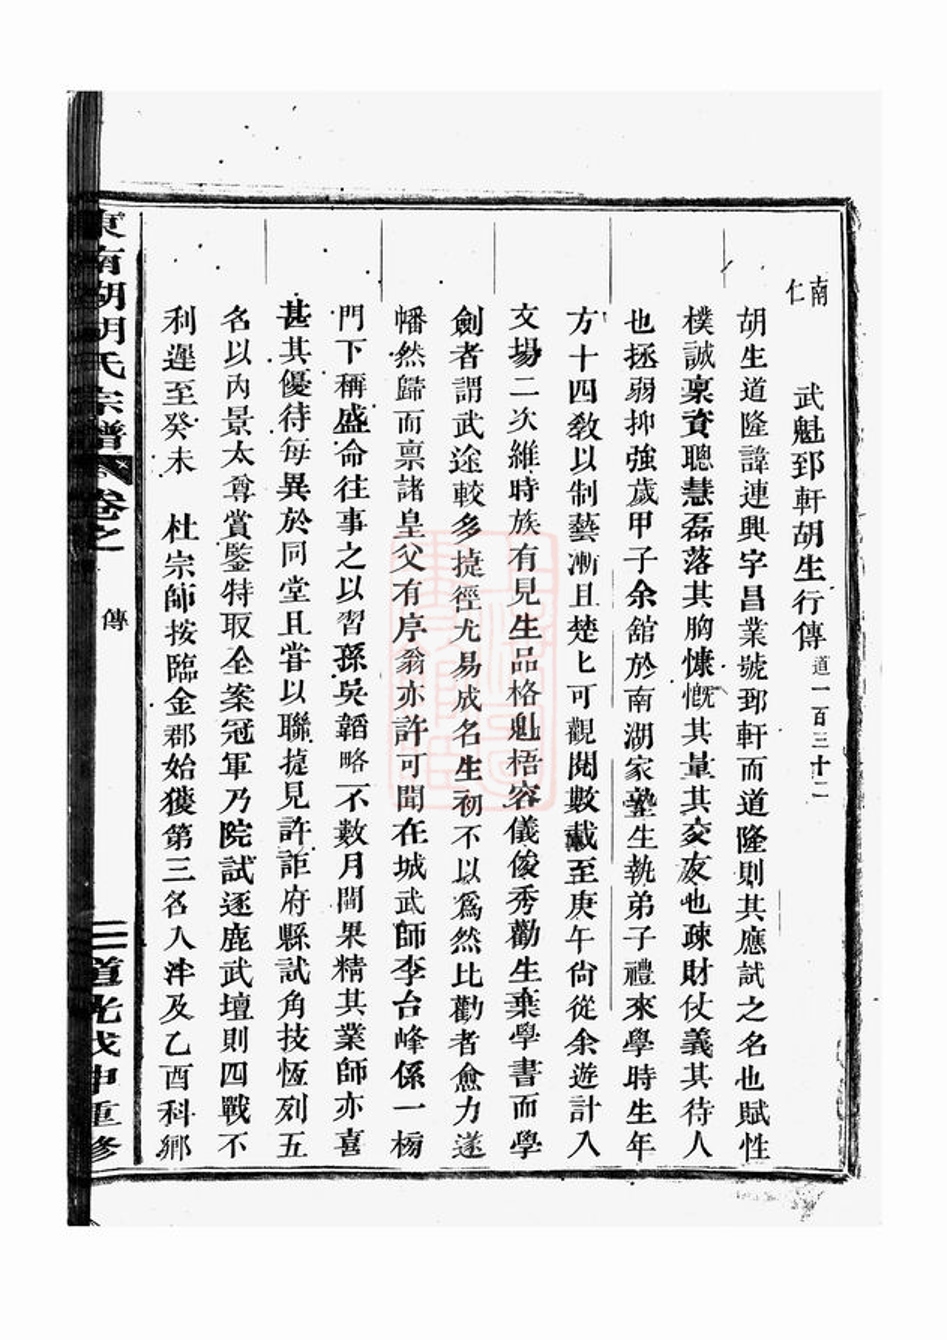 南
仁
武魁郅軒胡生行傳道一百三十二
胡生道隆諱連興字昌業號郅軒而道隆則其應試之名也賦性
樸誠稟資聰慧磊落其胸慷慨其量其交友也疎財仗義其待人
也拯弱抑強歲甲子余舘於南湖家塾生執弟子禮來學時生年
方十四敎以制藝漸且楚楚可觀閱數載至庚午尙從余遊計入
文場二次維時族有見生品格魁梧容儀俊秀勸生棄學書而學
劍者謂武途較多捷徑尤易成名生初不以爲然比勸者愈力遂
幡然歸而禀諸皇父有序翁亦許可聞在城武師李台峰係一榜
門下稱盛命往事之以習孫吳韜略不數月間果精其業師亦喜
甚其優待每異於同堂且甞以聯捷見許詎府縣試角技恆列五
名以內景太尊賞鑒特取全案冠軍乃院試逐鹿武壇則四戰不
利遲至癸未 杜宗師按臨金郡始獲第三名入泮及乙酉科鄉
東南湖胡氏宗譜 卷之
傳
道光戊申重修